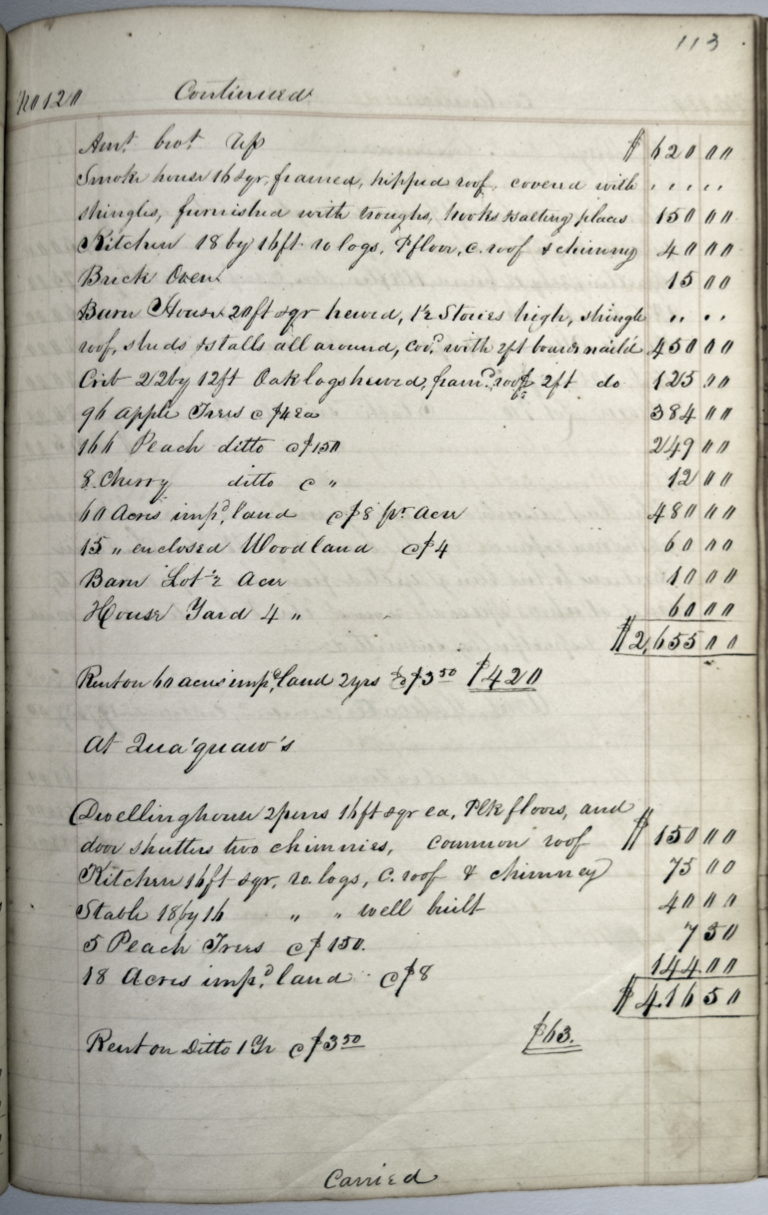 113
No 120 Continued
Amt. brot. Up $ 620 00
Smoke house 16 sqr, framed, hipped roof, covered with . . . .
shingles, furnished with troughs, hooks & salting places 150 00
Kitchen 18 by 16 ft. ro logs, P floor, c. roof & chimny 40 00
Brick Oven 15 00
Barn House 20 ft sqr hewed, 1½ Stories high, shingle " . .
roof, sheds & stalls all around, covd. with 2ft boards naild 450 00
Crib 22 by 12 ft Oak logs hewed, framd. roof 2ft do 125 00
96 Apple Trees @ $4 ea 384 00
166 Peach ditto @ $1 50 249 00
8 Cherry ditto @ " 12 00
60 Acres impd. land @ $8 pr. acre 480 00
15 " enclosed Woodland @ $4 60 00
Barn Lot ½ Acre 10 00
House Yard 4 " 60 00
$ 2,655 00
Rent on 60 acres impd. land 2 yrs @ $3 50 $420
At Qua'quaw's
Dwelling house 2 pens 16 ft sqr ea, Plk floors, and
door shutters two chimnies, common roof $ 150 00
Kitchen 16 ft sqr, ro. logs, C. roof & chimney 75 00
Stable 18 by 16 " " well built 40 00
5 Peach Trees @ $1 50. 7 50
18 Acres impd. land @ $8 144 00
$ 416 50
Rent on Ditto 1 Yr @ $3 50 $63.
Carried